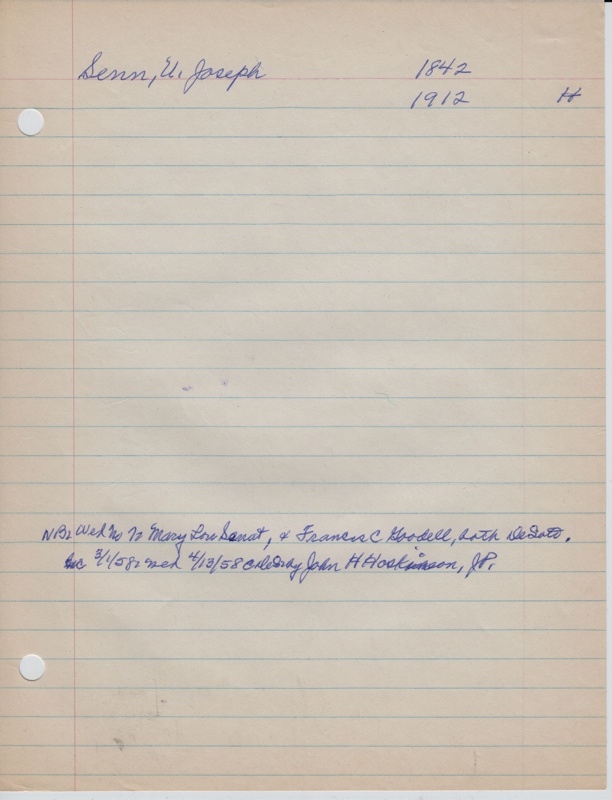 Senn, U. Joseph 1842
1912 H
NB: Wed No 70 Mary Lou & Francis C Goodell, both DeSoto.
3/1/58: wed 4/13/58 by John H Hoskinson, JP.